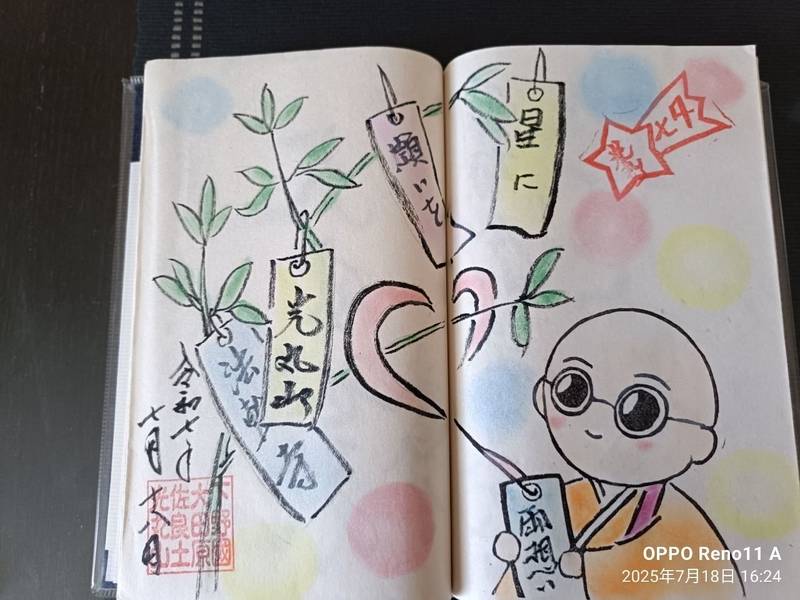 星に
願いを
七夕
両想い
光丸山
令和七年
七月十八日
下野國
大田原
佐良土
光丸山
OPPO Reno11 A
2025年7月18日 16:24